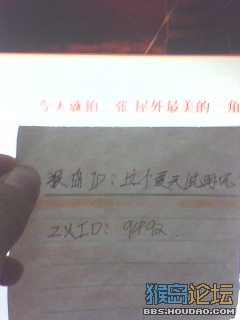 今天就拍一张 屋外最美的一角
猴岛ID：这个夏天
ZXID：94992
猴岛论坛
BBS.HOUDAO.COM